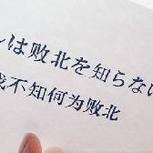 は敗北を知らない
我不知何为败北